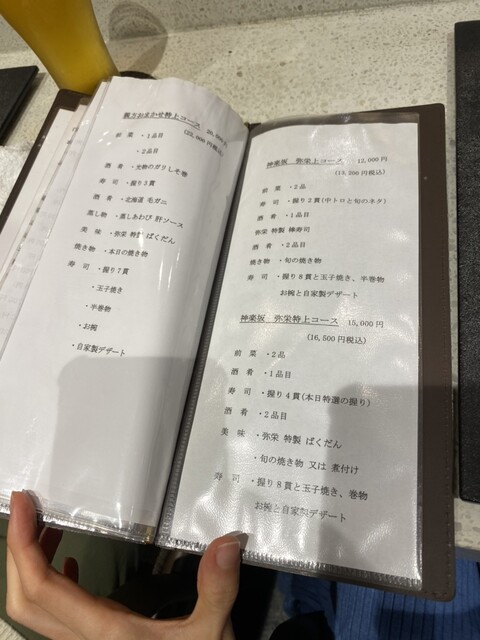 親方おまかせ特上コース 20,000円
(22,000円税込)
前 菜 ・1品目
・2品目
酒 肴 ・光物のガリしそ巻
寿 司 ・握り3貫
酒 肴 ・北海道 毛ガニ
蒸し物 ・蒸しあわび 肝ソース
美 味 ・弥栄 特製 ばくだん
焼き物 ・本日の焼き物
寿 司 ・握り7貫
・玉子焼き
・半巻物
・お椀
・自家製デザート
神楽坂 弥栄上コース 12,000円
(13,200円税込)
前 菜 ・2品
寿 司 ・握り2貫(中トロと旬のネタ)
酒 肴 ・1品目
弥栄 特製 棒寿司
酒 肴 ・2品目
焼き物 ・旬の焼き物
寿 司 ・握り8貫と玉子焼き、半巻物
お椀と自家製デザート
神楽坂 弥栄特上コース 15,000円
(16,500円税込)
前 菜 ・2品
酒 肴 ・1品目
寿 司 ・握り4貫(本日特選の握り)
酒 肴 ・2品目
美 味 ・弥栄 特製 ばくだん
・旬の焼き物 又は 煮付け
寿 司 ・握り8貫と玉子焼き、巻物
お椀と自家製デザート